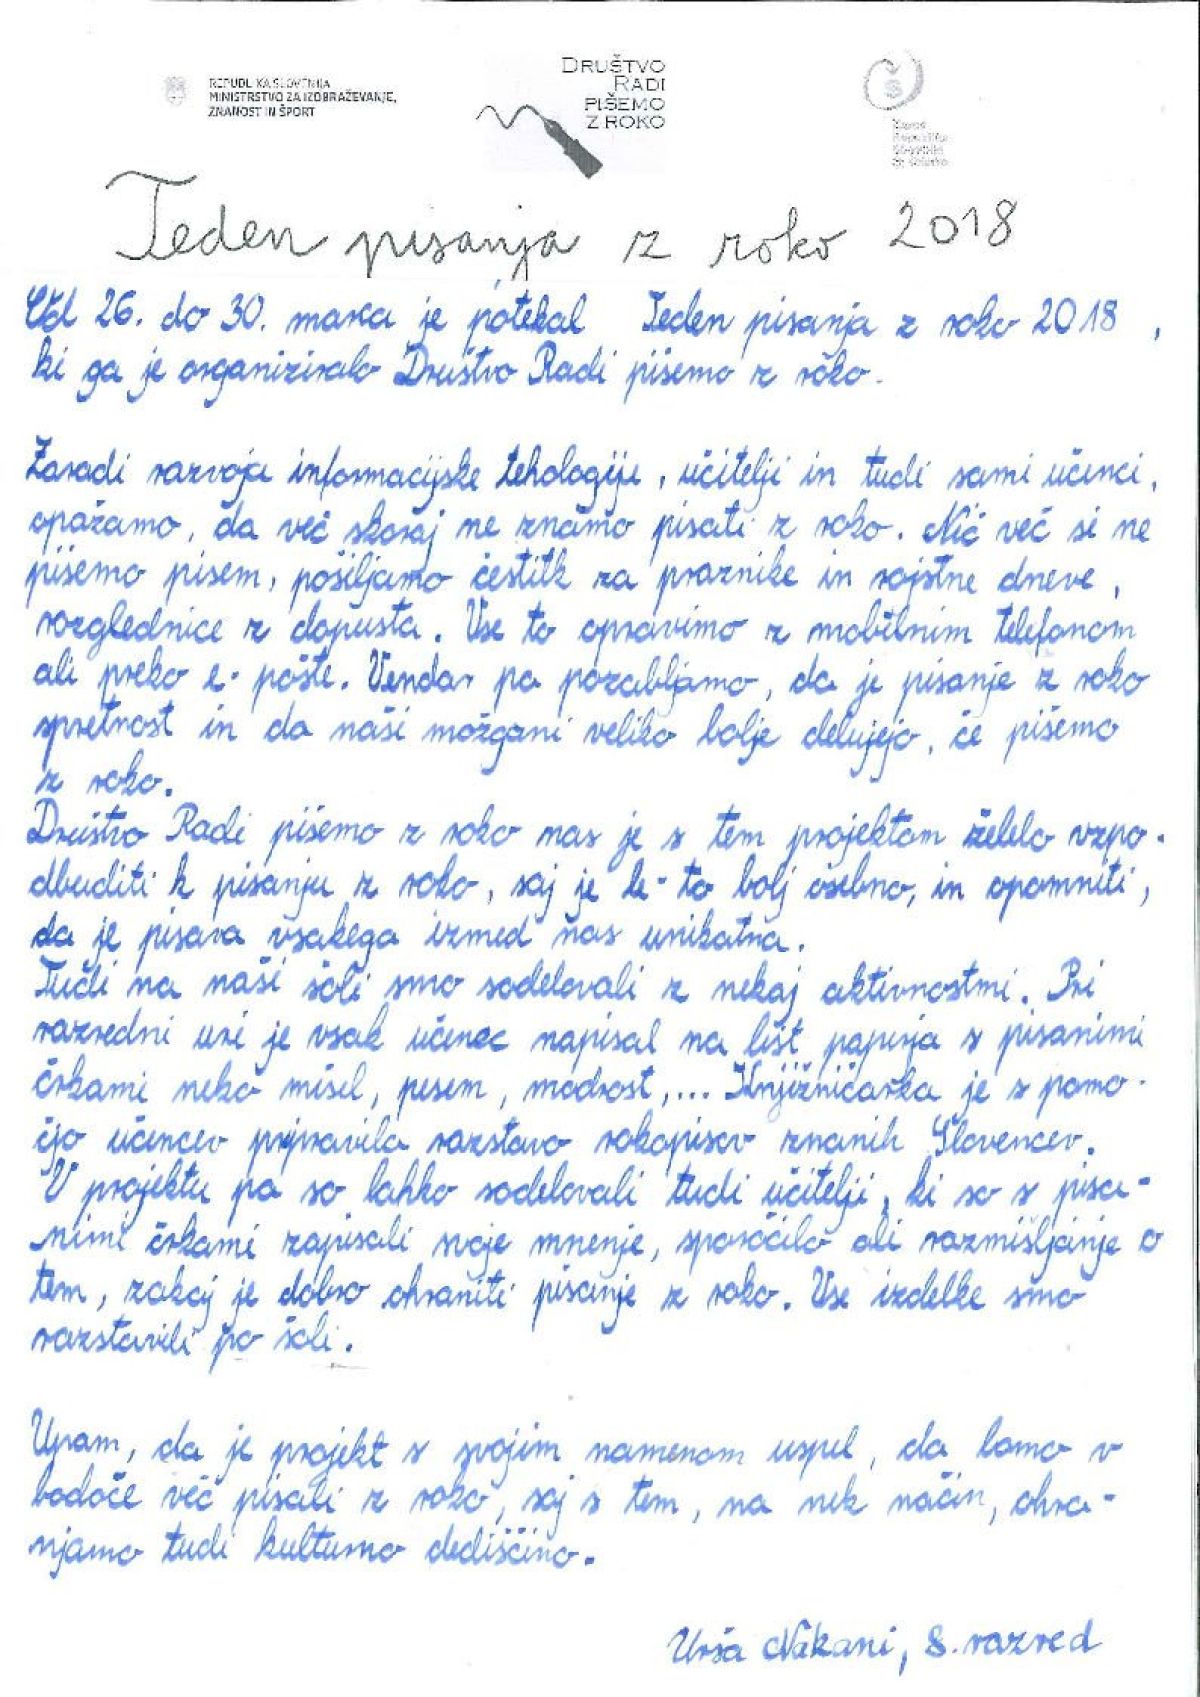 REPUBLIKA SLOVENIJA
MINISTRSTVO ZA IZOBRAŽEVANJE,
ZNANOST IN ŠPORT
DRUŠTVO
RADI
PIŠEMO
Z ROKO
Zavod
Republike
Slovenije
za šolstvo
Teden pisanja z roko 2018
Od 26. do 30. marca je potekal Teden pisanja z roko 2018,
ki ga je organiziralo Društvo Radi pišemo z roko.
Zaradi razvoja informacijske tehologije, učitelji in tudi sami učenci,
opažamo, da več skoraj ne znamo pisati z roko. Nič več si ne
pišemo pisem, pošiljamo čestitk za praznike in rojstne dneve,
razglednice z dopusta. Vse to opravimo z mobilnim telefonom
ali preko e-pošte. Vendar pa pozabljamo, da je pisanje z roko
spretnost in da naši možgani veliko bolje delujejo, če pišemo
z roko.
Društvo Radi pišemo z roko nas je s tem projektom želelo vzpo-
dbuditi k pisanju z roko, saj je le-to bolj osebno, in opomniti,
da je pisava vsakega izmed nas unikatna.
Tudi na naši šoli smo sodelovali z nekaj aktivnostmi. Pri
razredni uri je vsak učenec napisal na list papirja s pisanimi
črkami neko misel, pesem, modrost,... Knjižničarka je s pomo-
čjo učencev pripravila razstavo rokopisov znanih Slovencev.
V projektu pa so lahko sodelovali tudi učitelji, ki so s pisa-
nimi črkami zapisali svoje mnenje, sporočilo ali razmišljanje o
tem, zakaj je dobro ohraniti pisanje z roko. Vse izdelke smo
razstavili po šoli.
Upam, da je projekt s svojim namenom uspel, da bomo v
bodoče več pisali z roko, saj s tem, na nek način, ohra-
njamo tudi kulturno dediščino.
Urša Nakani, 8. razred